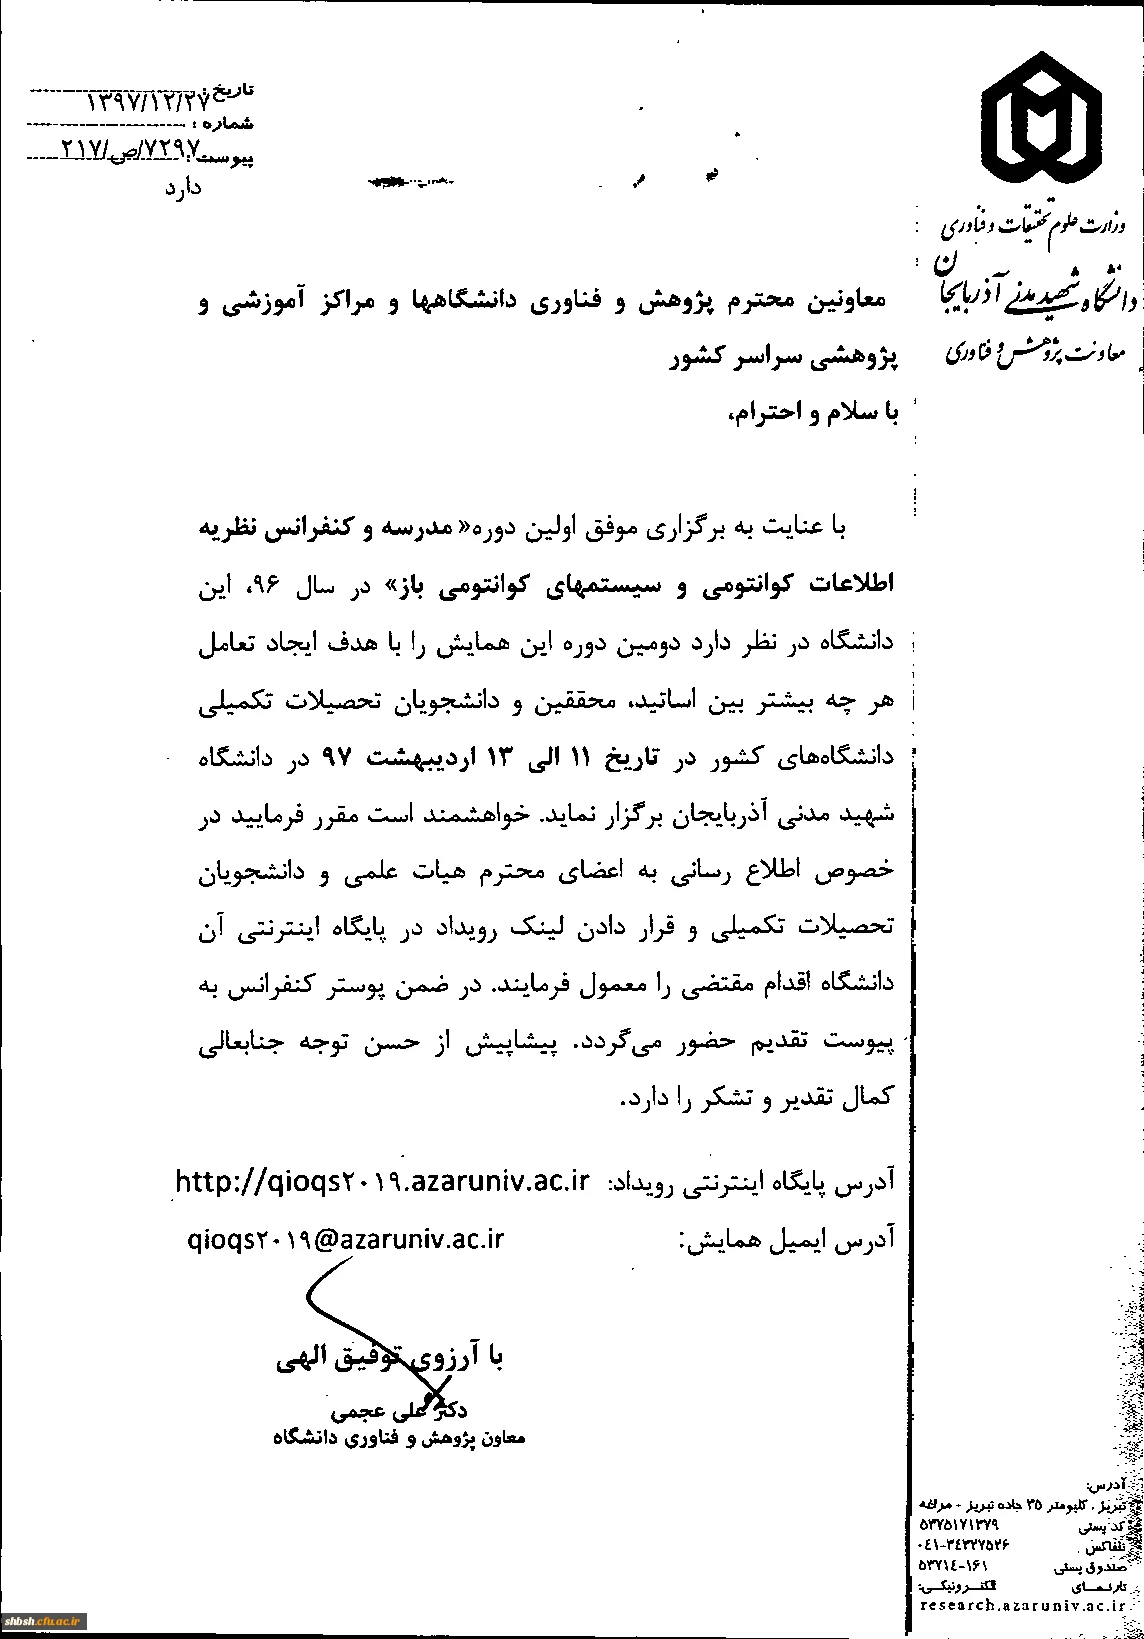 تاریخ: ۱۳۹۷/۱۲/۲۷
شماره:
پیوست: ۲۱۷/ص/۷۲۹۷
دارد
وزارت علوم تحقیقات و فناوری
دانشگاه شهید مدنی آذربایجان
معاونت پژوهش و فناوری
معاونین محترم پژوهش و فناوری دانشگاهها و مراکز آموزشی و
پژوهشی سراسر کشور
با سلام و احترام،
با عنایت به برگزاری موفق اولین دوره« مدرسه و کنفرانس نظریه
اطلاعات کوانتومی و سیستمهای کوانتومی باز» در سال ۹۶، این
دانشگاه در نظر دارد دومین دوره این همایش را با هدف ایجاد تعامل
هر چه بیشتر بین اساتید، محققین و دانشجویان تحصیلات تکمیلی
دانشگاه‌های کشور در تاریخ ۱۱ الی ۱۳ اردیبهشت ۹۷ در دانشگاه
شهید مدنی آذربایجان برگزار نماید. خواهشمند است مقرر فرمایید در
خصوص اطلاع رسانی به اعضای محترم هیات علمی و دانشجویان
تحصیلات تکمیلی و قرار دادن لینک رویداد در پایگاه اینترنتی آن
دانشگاه اقدام مقتضی را معمول فرمایند. در ضمن پوستر کنفرانس به
پیوست تقدیم حضور می‌گردد. پیشاپیش از حسن توجه جنابعالی
کمال تقدیر و تشکر را دارد.
آدرس پایگاه اینترنتی رویداد: http://qioqs۲۰۱۹.azaruniv.ac.ir
آدرس ایمیل همایش: qioqs۲۰۱۹@azaruniv.ac.ir
با آرزوی توفیق الهی
دکتر علی عجمی
معاون پژوهش و فناوری دانشگاه
آدرس:
تبریز، کلیومتر ۳۵ جاده تبریز - مراغه
کد پستی ۵۳۷۵۱۷۱۳۷۹
تلفاکس ۰٤۱-۳٤۳۲۷۵۲۶
صندوق پستی ۵۳۷۱٤-۱۶۱
تارنمای الکترونیکی:
research.azaruniv.ac.ir
shbsh.cfu.ac.ir